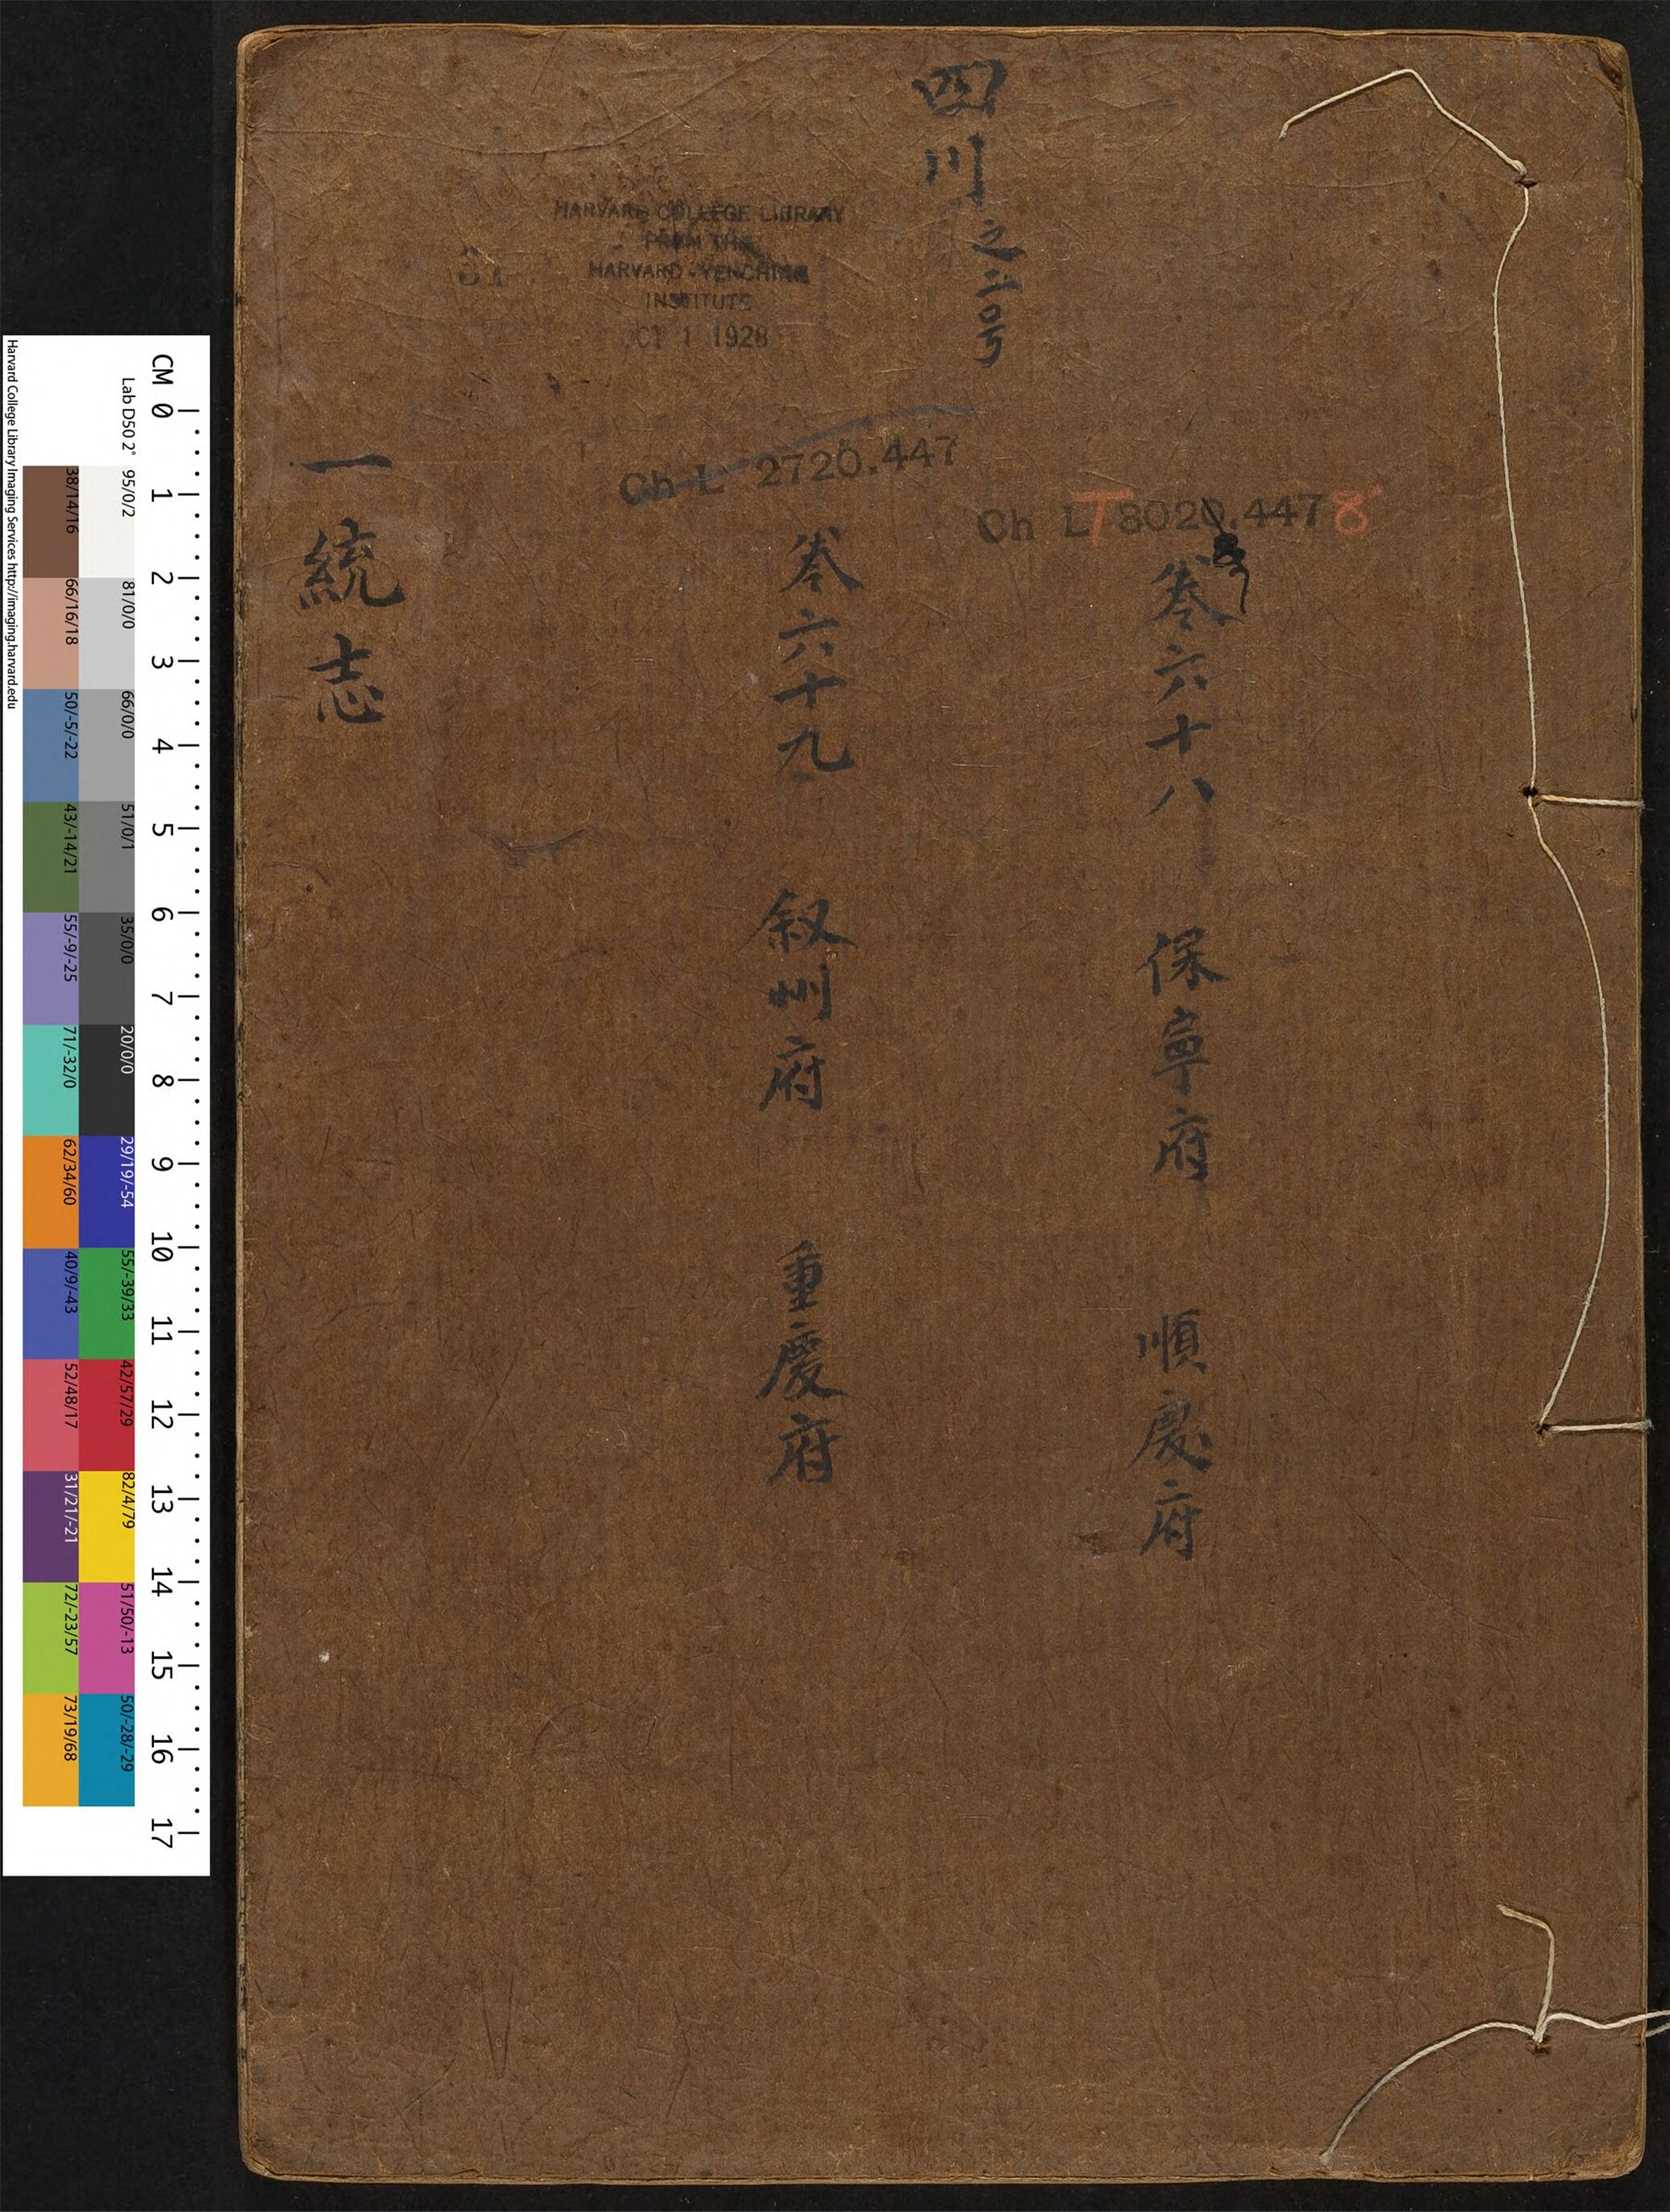 四川之二号
HARVARD COLLEGE LIBRARY
FROM THE
HARVARD-YENCHING
INSTITUTE
OCT 1 1928
31
Ch L 2720.447
Ch LT 3020.4478
卷六十八 保寧府 順慶府
卷六十九 叙州府 重慶府
一統志
Harvard College Library Imaging Services http://imaging.harvard.edu
Lab D50 2°
CM 0 1 2 3 4 5 6 7 8 9 10 11 12 13 14 15 16 17
95/0/2 81/0/0 66/0/0 51/0/1 35/0/0 20/0/0 29/19/-54 55/-39/33 42/57/29 82/4/79 51/50/-13 50/-28/-29
38/14/16 66/16/18 50/-5/-22 43/-14/21 55/-9/-25 71/-32/0 62/34/60 40/9/-43 52/48/17 31/21/-21 72/-23/57 73/19/68